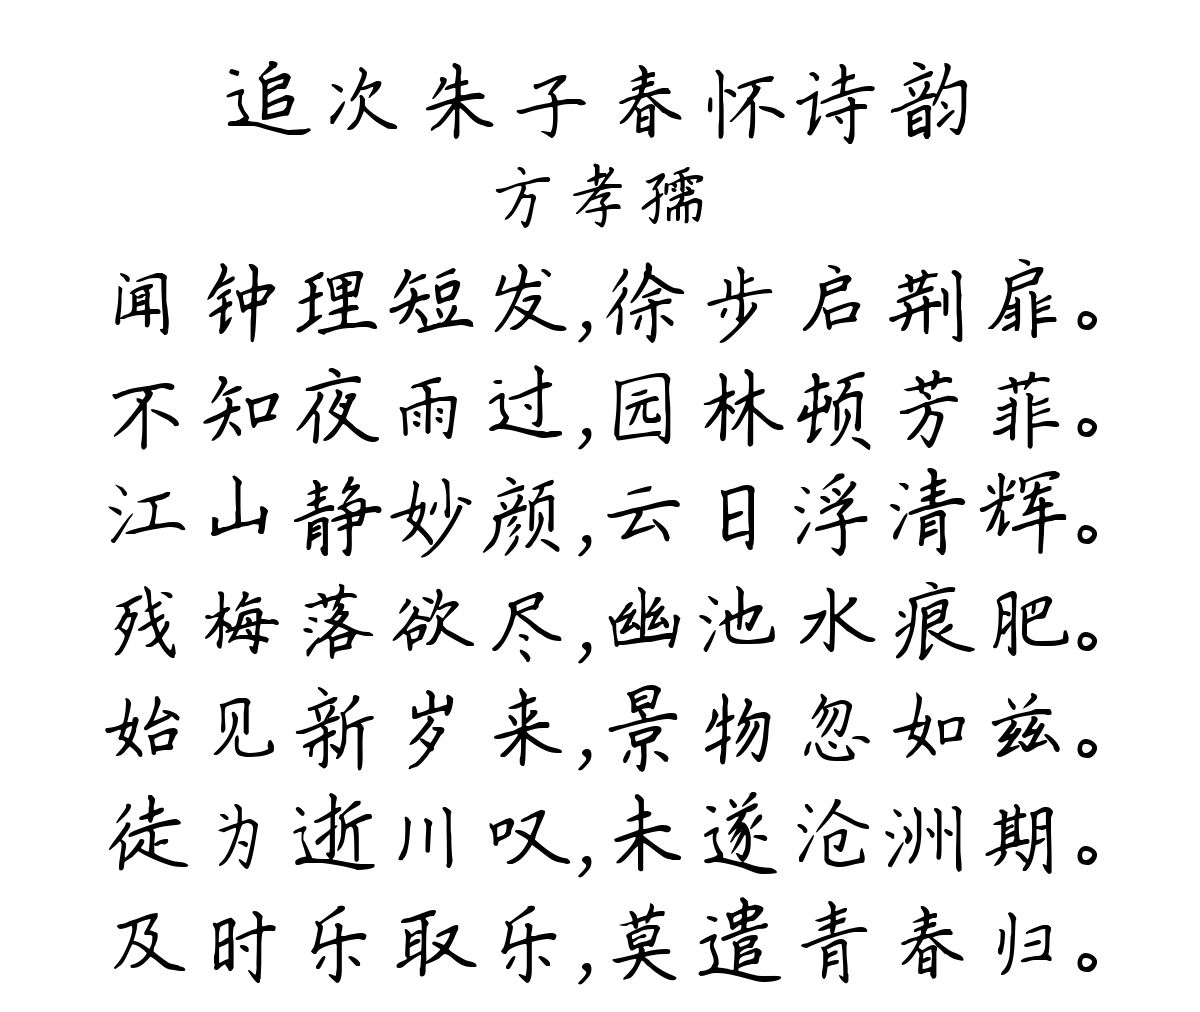 追次朱子春怀诗韵
方孝孺
闻钟理短发,徐步启荆扉。
不知夜雨过,园林顿芳菲。
江山静妙颜,云日浮清辉。
残梅落欲尽,幽池水痕肥。
始见新岁来,景物忽如兹。
徒为逝川叹,未遂沧洲期。
及时乐取乐,莫遣青春归。